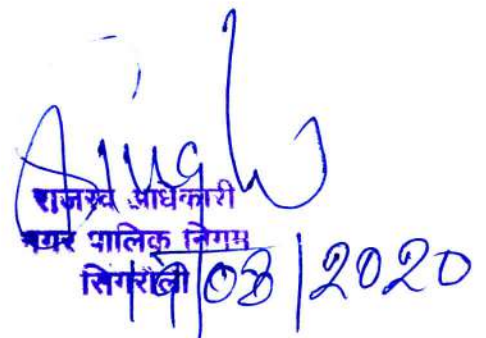 Singh
राजस्व अधिकारी
नगर पालिक निगम
सिंगरौली
/03/2020